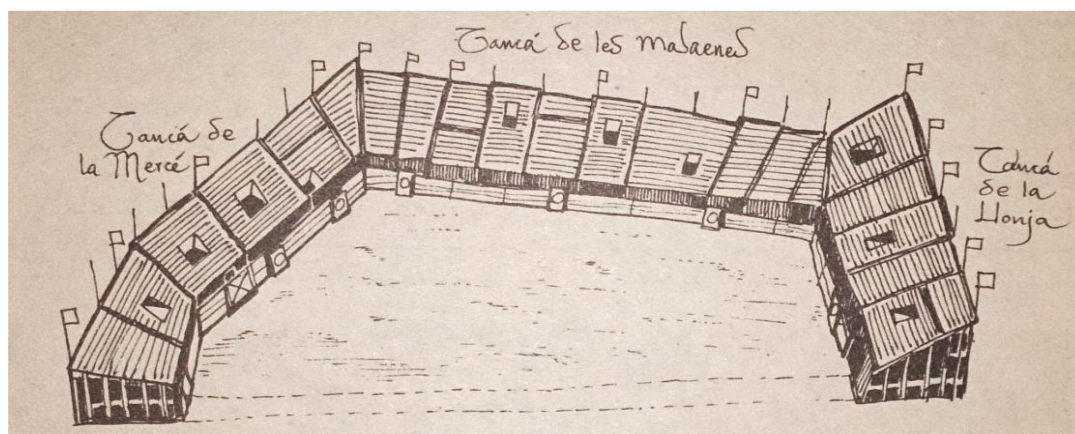 Tancá de les Madaenes
Tancá de
la Mercé
Tancá
de la
Llonja